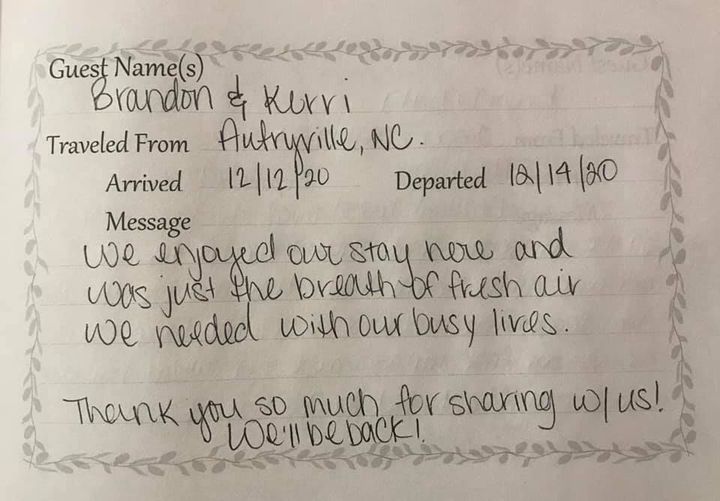 Guest Name(s)
Brandon & Kerri
Traveled From Autryville, NC.
Arrived 12/12/20 Departed 12/14/20
Message
We enjoyed our stay here and
was just the breath of fresh air
we needed with our busy lives.
Thank you so much for sharing w/ us!
We'll be back!